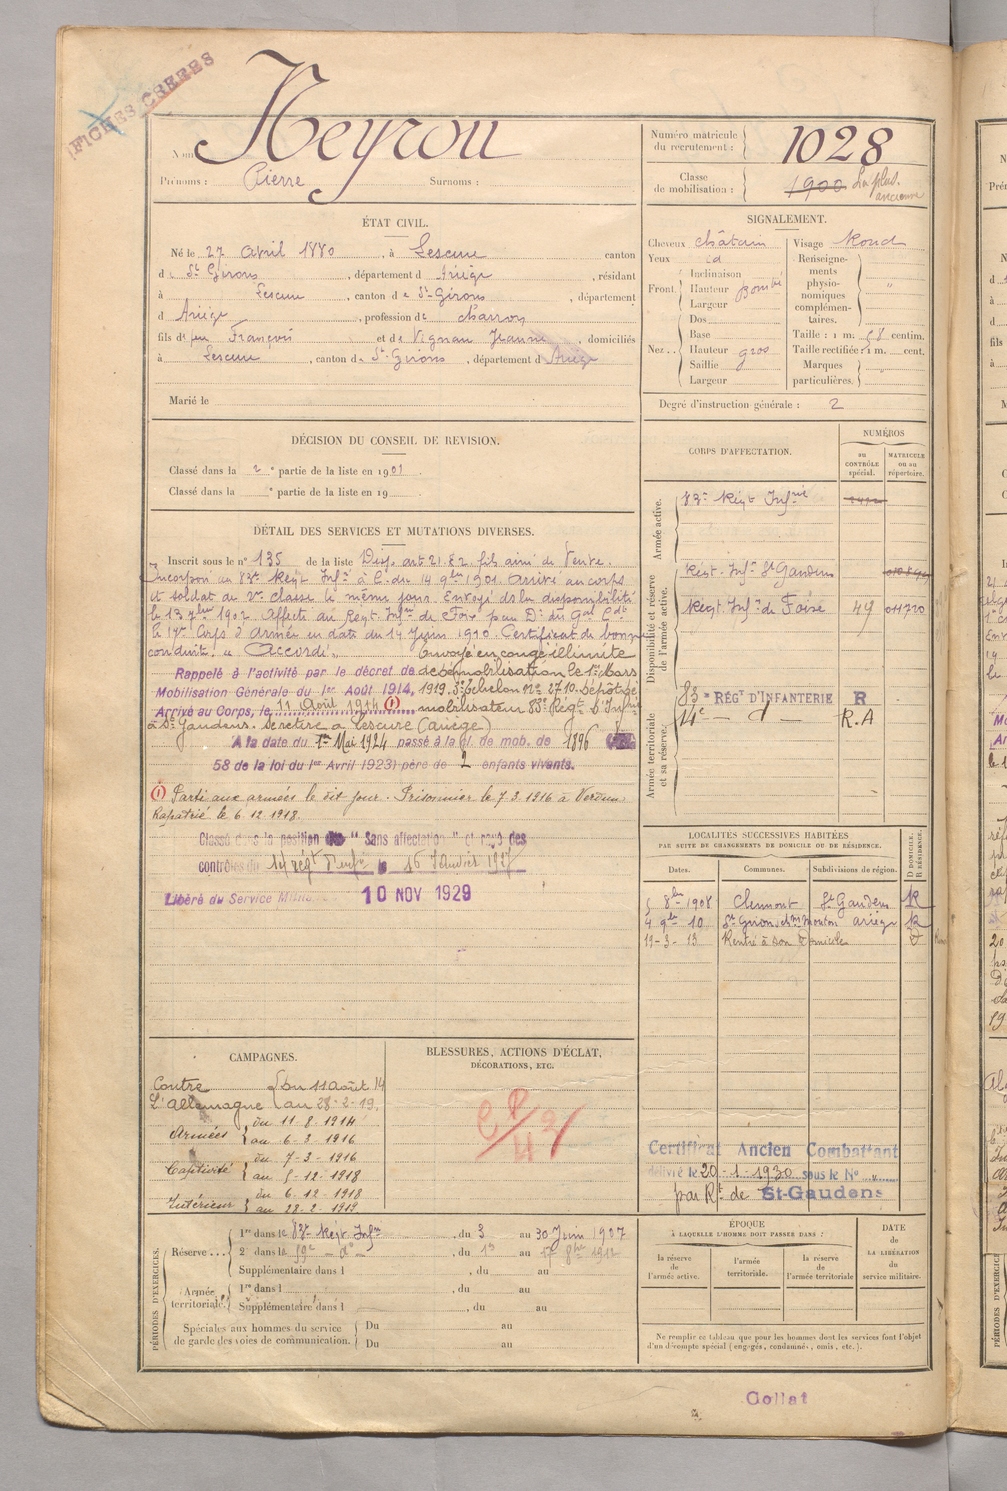 FICHES CSERES
Nom Neyrou
Prénoms : Pierre Surnoms :
Numéro matricule du recrutement : 1028
Classe de mobilisation : 1900 La plus ancienne
ÉTAT CIVIL.
Né le 27 avril 1880, à Lescure canton
de St Girons, département d Ariège, résidant
à Lescure, canton de St-Girons, département
d Ariège, profession de charron
fils de feu François et de Vignau Jeanne, domiciliés
à Lescure, canton de St-Girons, département d Ariège
Marié le
SIGNALEMENT.
Cheveux châtain
Yeux id
Front. Inclinaison
Hauteur bombé
Largeur
Nez .. Dos
Base
Hauteur gros
Saillie
Largeur
Visage Rond
Renseignements physionomiques complémentaires. "
Taille : 1 m. 58 centim.
Taille rectifiée : 1 m. cent.
Marques particulières. "
Degré d'instruction générale : 2
DÉCISION DU CONSEIL DE REVISION.
Classé dans la 2e partie de la liste en 1901.
Classé dans la e partie de la liste en 19 .
DÉTAIL DES SERVICES ET MUTATIONS DIVERSES.
Inscrit sous le n° 135 de la liste Disp. art 21.§2. fils aîné de Veuve.
Incorporé au 83e Régt Infrie à C. du 14 9bre 1901. Arrivé au corps
et soldat de 2e classe le même jour. Envoyé ds la disponibilité
le 13 7bre 1902. Affecté au Régt. Infrie de Foix par Dn du Gal Cdt
le 17e Corps d'Armée en date du 14 Juin 1910. Certificat de bonne
conduite "Accordé". Envoyé en congé illimité
Rappelé à l'activité par le décret de démobilisation le 1er Mars
Mobilisation Générale du 1er Août 1914, 1919, 3e échelon n° 2710. Dépôt dé
Arrivé au Corps, le 11 Août 1914 (1) mobilisateur 83e Régt D'Infrie
à St Gaudens. Se retire à Lescure (Ariège)
A la date du 1er Mai 1924 passé à la cl. de mob. de 1896
58 de la loi du 1er Avril 1923) père de 2 enfants vivants.
(1) Parti aux armées le dit jour. Prisonnier le 7.3.1916 à Verdun.
Rapatrié le 6.12.1918.
Classé dans la position de "Sans affectation" et rayé des
contrôles du 14 Régt d'Infie le 16 Janvier 1927
Libéré du Service Milit. 10 NOV 1929
CORPS D'AFFECTATION.
NUMÉROS
au CONTRÔLE spécial.
MATRICULE ou au répertoire.
Armée active.
83e Régt Infrie
Disponibilité et réserve de l'armée active.
Régt. Infie St Gaudens
Régt. Infie de Foix 49 04720
Armée territoriale et sa réserve.
83e RÉGT D'INFANTERIE R
14e — d° — R.A
LOCALITÉS SUCCESSIVES HABITÉES
PAR SUITE DE CHANGEMENTS DE DOMICILE OU DE RÉSIDENCE.
Dates. Communes. Subdivisions de région. D DOMICILE. R RÉSIDENCE.
5 8bre 1908 Clermont St Gaudens R
4 9bre 10 St Girons, ch. mouton Ariège R
19-3-13 Rentré à son domicile D
CAMPAGNES.
Contre l'Allemagne { Du 11 août 14
au 28-2-19.
Armées { du 11.8.1914
au 6-3-1916
Captivité { du 7-3-1916
au 5-12-1918
Intérieur { du 6.12.1918
au 28.2.1919
BLESSURES, ACTIONS D'ÉCLAT,
DÉCORATIONS, ETC.
Certificat Ancien Combattant
délivré le 20-1-1930 sous le N° "
par Rt de St-Gaudens
PÉRIODES D'EXERCICES.
Réserve ... 1re dans le 83e Régt Infie, du 3 au 30 Juin 1907
2e dans le 59e — d° —, du 1er au 17 8bre 1912
Supplémentaire dans l , du au
Armée territoriale. 1re dans l , du au
Supplémentaire dans l , du au
Spéciales aux hommes du service de garde des voies de communication. Du au
Du au
ÉPOQUE
À LAQUELLE L'HOMME DOIT PASSER DANS :
la réserve de l'armée active. l'armée territoriale. la réserve de l'armée territoriale
DATE de LA LIBÉRATION du service militaire.
Ne remplir ce tableau que pour les hommes dont les services font l'objet
d'un décompte spécial (engagés, condamnés, omis, etc.).
Collat